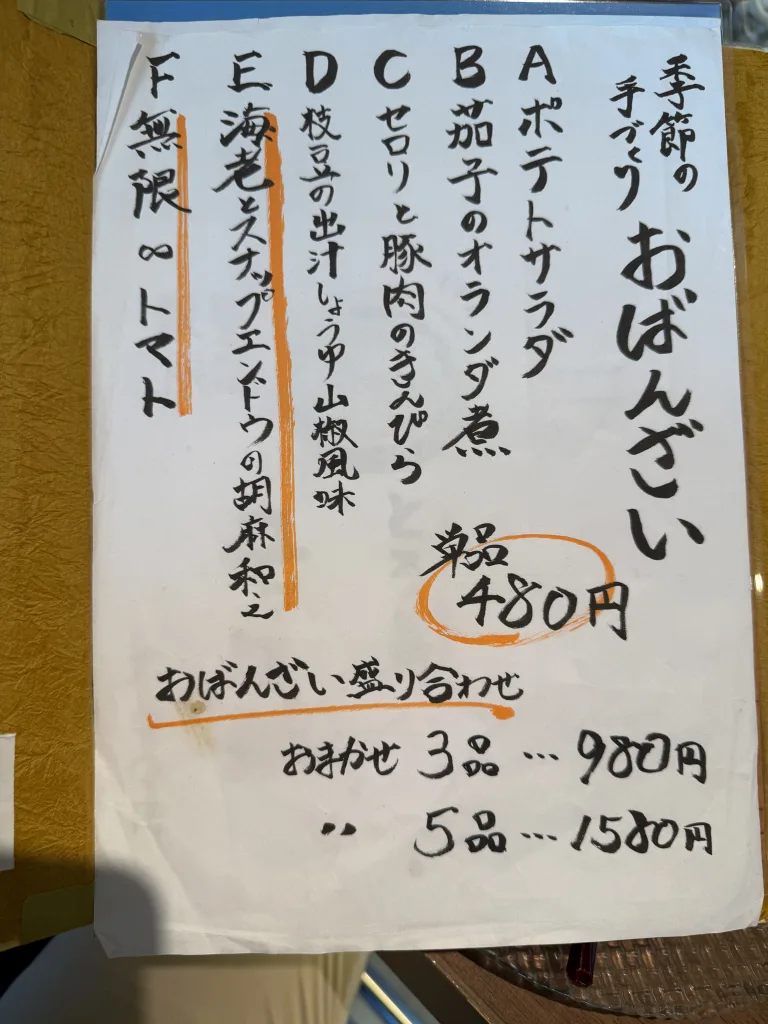 季節の
手づくり
おばんざい
A ポテトサラダ
B 茄子のオランダ煮
C セロリと豚肉のきんぴら
D 枝豆の出汁しょうゆ山椒風味
E 海老とスナップエンドウの胡麻和え
F 無限∞トマト
単品
480円
おばんざい盛り合わせ
おまかせ 3品…980円
〃 5品…1580円